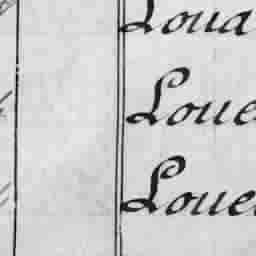 Loua
Loue
Loue